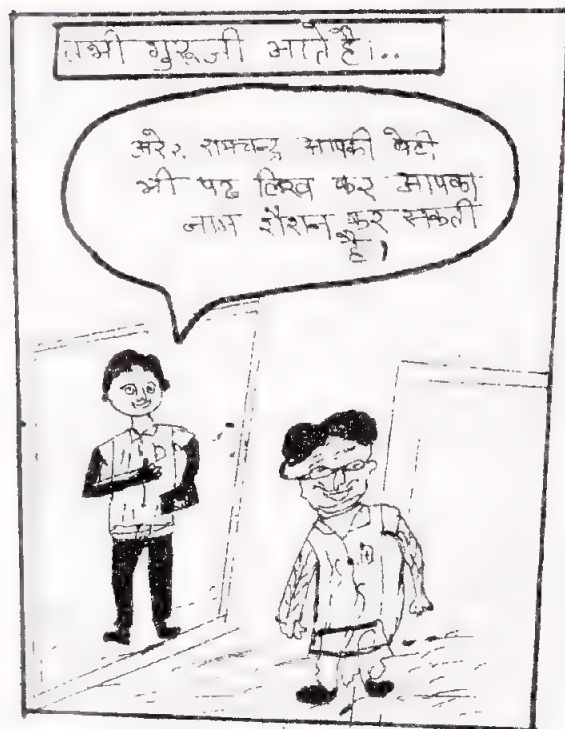 तभी गुरुजी आते है।..
अरे२. रामचन्द्र आपकी बेटी
भी पढ लिख कर आपका
नाम रौशन कर सकती
है।